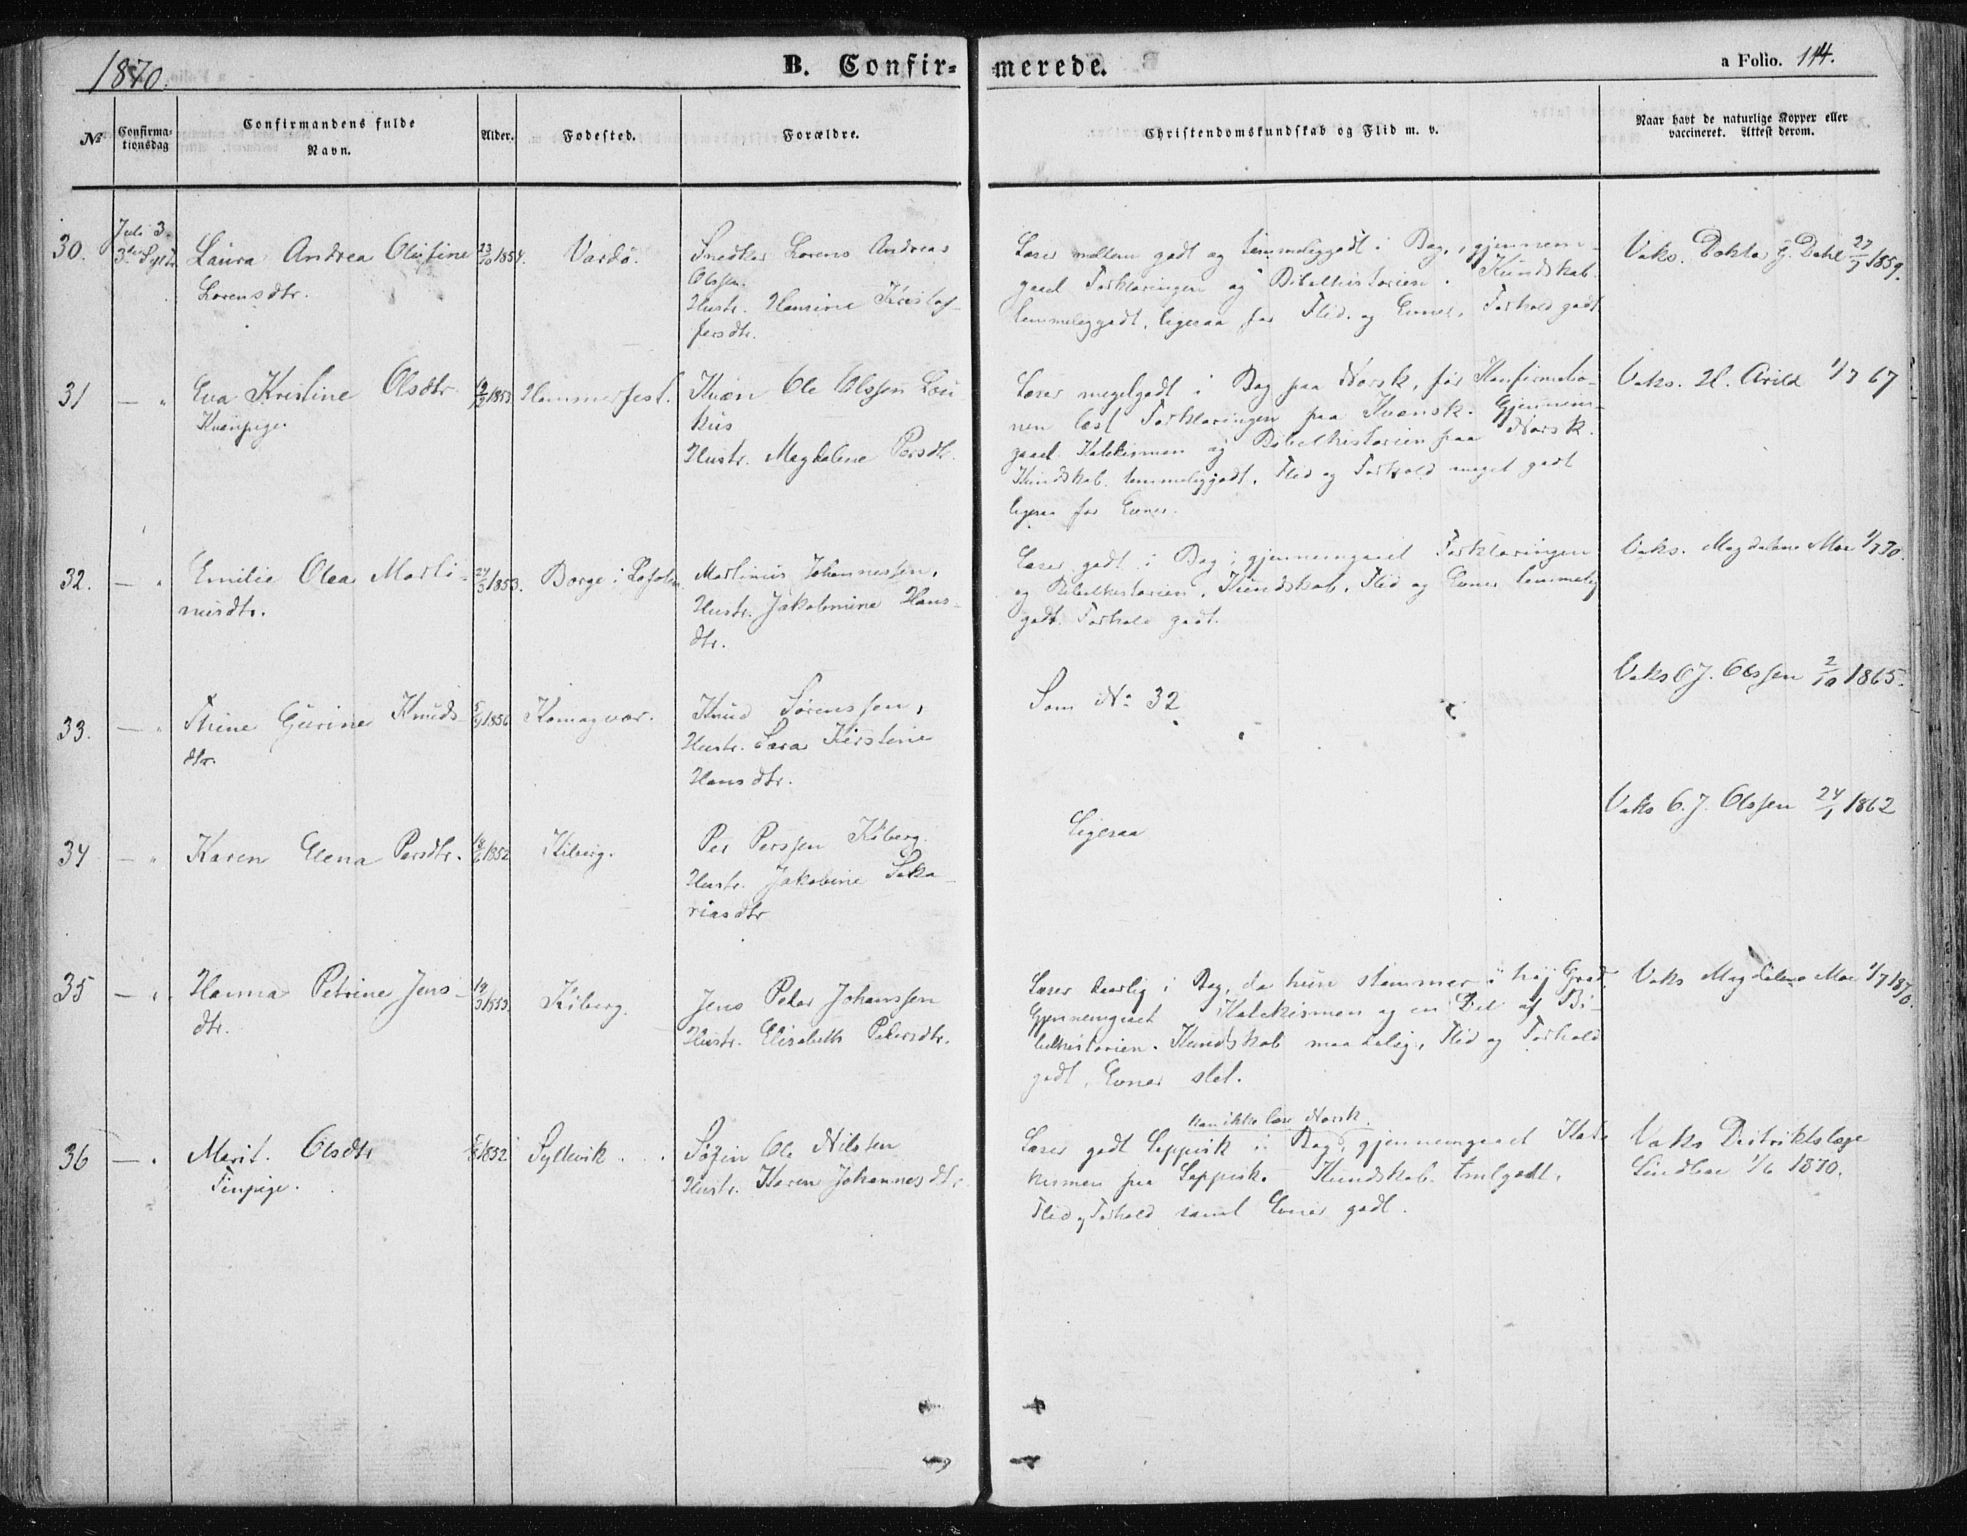 1870.
B. Confir-
merede.
a Folio. 114.
No
Confirma-
tionsdag
Confirmandens fulde
Navn.
Alder.
Fødested.
Forældre.
Christendomskundskab og Flid m. v.
Naar havt de naturlige Kopper eller
vaccineret. Attest derom.
30.
Juli 3.
Laura Andrea Olufine
Lorensdtr.
23/10 1854.
Vardö.
Snedker Lorens Andreas
Olssen.
Hustr. Hansine Kristof-
fersdtr.
Læser mellem godt og temmeliggodt i Bog, gjennem-
gaaet Forklaringen og Bibelhistorien. Kundskab
temmeliggodt, ligesaa for Flid og Evner, Forhold godt
Vaks. Doktor J. Dahl 27/7 1859.
31
— "
Eva Kristine Olsdtr.
Kvænpige.
1853
Hammerfest.
Kvæn Ole Olssen Lou
kus
Hustr. Magdalena Persdtr.
Læser megetgodt i Bog paa Norsk, før Konfirmatio-
nen læst Forklaringen paa Kvænsk. Gjennem-
gaaet Katekismen og Bibelhistorien paa Norsk.
Kundskab temmeliggodt, Flid og Forhold meget godt
ligesaa for Evner.
Vaks. H. Arild 1/7 67
32.
— "
Emilie Olea Marti-
nusdtr.
24/3 1853.
Borge i Lofoten
Martinus Johannessen,
Hustr. Jakobmine Hans-
dtr.
Læser godt i Bog; gjennemgaaet Forklaringen
og Bibelhistorien, Kundskab, Flid og Evner temmelig
godt. Forhold godt.
Vaks. Magdalena Moe 1/7 70
33.
— "
Thine Gurine Knuds
dtr.
1856
Komagvær.
Knud Sörenssen,
Hustr. Sara Kirstine
Hansdtr.
Som No 32
Vaks O J. Olssen 2/10 1865.
34
— "
Karen Elena Persdtr.
1852
Kiberg.
Per Perssen Kiberg.
Hustr. Jakobine Saka-
riasdtr
Ligesaa
Vaks O. J. Olssen 24/1 1862
35
— "
Hanna Petrine Jens-
dtr.
19/3 1853.
Kiberg.
Jens Peter Johanssen
Hustr. Elisabeth Petersdtr.
Læser daarlig i Bog, da hun stammer i høj Grad.
Gjennemgaaet Katekismen og en Del af Bi-
belhistorien. Kundskab maadelig, Flid og Forhold
godt, Evner slet.
Vaks Magdalena Moe 1/7 1870.
36
— "
Marit Olsdtr
Finpige.
1852
Syltevik
Søfin Ole Nilsen
Hustr. Karen Johannesdtr.
kan ikke læse Norsk.
Læser godt Lappisk i Bog, gjennemgaaet Kate
kismen paa Lappisk. Kundskab temlgodt,
Flid og Forhold samt Evner godt.
Vaks Distriktslæge
Lindboe 1/6 1870.